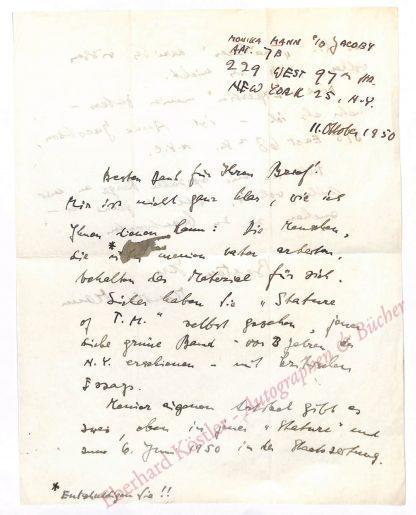 MONIKA MANN c/o JACOBY
APT. 7B
229 WEST 97th
NEW YORK 25, N.Y.
11. Oktober 1950
Besten Dank für Ihren Brief!
Mir ist nicht ganz klar, wie ich
Ihnen dienen kann: Die Menschen,
die * meinen Vater arbeiten,
behalten das Material für sich.
Sicher haben Sie "Stature
of T.M." selbst gesehen, jener
dicke grüne Band - vor 3 Jahren in
N.Y. erschienen - mit
Essays.
Meiner eigenen Artikel gibt es
zwei, eben in jenem "Stature" und
zum 6. Juni 1950 in der Staatszeitung.
* Entschuldigen Sie!!
Eberhard Köstler Autographen & Bücher